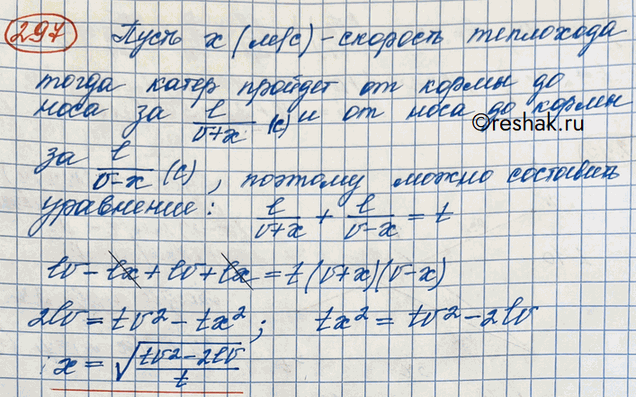 297 Пусть x (м/с) - скорость теплохода
тогда катер пройдет от кормы до
носа за l/(v+x) (с) и от носа до кормы
©reshak.ru
за l/(v-x) (с), поэтому можно составить
уравнение: l/(v+x) + l/(v-x) = t
lv - lx + lv + lx = t(v+x)(v-x)
2lv = tv² - tx²; tx² = tv² - 2lv
x = √((tv² - 2lv)/t)